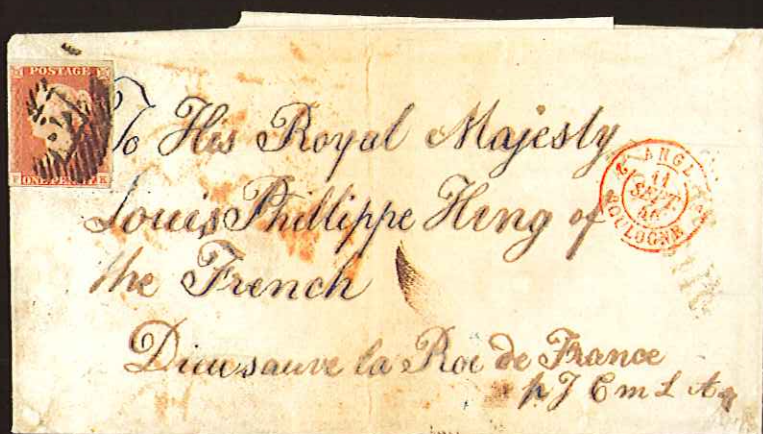 POSTAGE
ONE PENNY
K
To His Royal Majesty
Louis Phillippe King of
the French
Dieu sauve la Roi de France
ANGL.
11
SEPT.
BOULOGNE